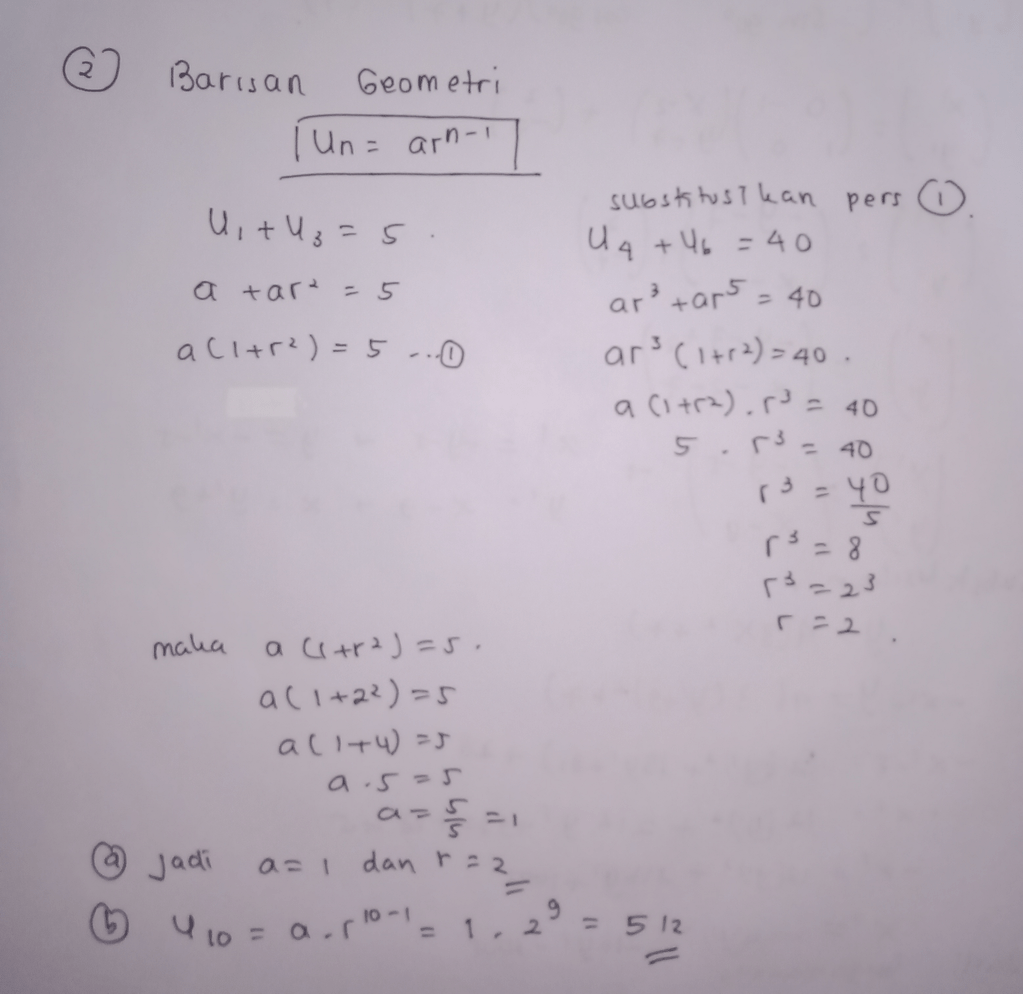 ② Barisan Geometri
Un = arⁿ⁻¹
U₁ + U₃ = 5
a + ar² = 5
a(1+r²) = 5 ...①
substitusikan pers ①.
U₄ + U₆ = 40
ar³ + ar⁵ = 40
ar³ (1+r²) = 40.
a (1+r²) . r³ = 40
5 . r³ = 40
r³ = 40/5
r³ = 8
r³ = 2³
r = 2.
maka a (1+r²) = 5.
a(1+2²) = 5
a(1+4) = 5
a . 5 = 5
a = 5/5 = 1
ⓐ Jadi a = 1 dan r = 2
ⓑ U₁₀ = a . r¹⁰⁻¹ = 1 . 2⁹ = 512